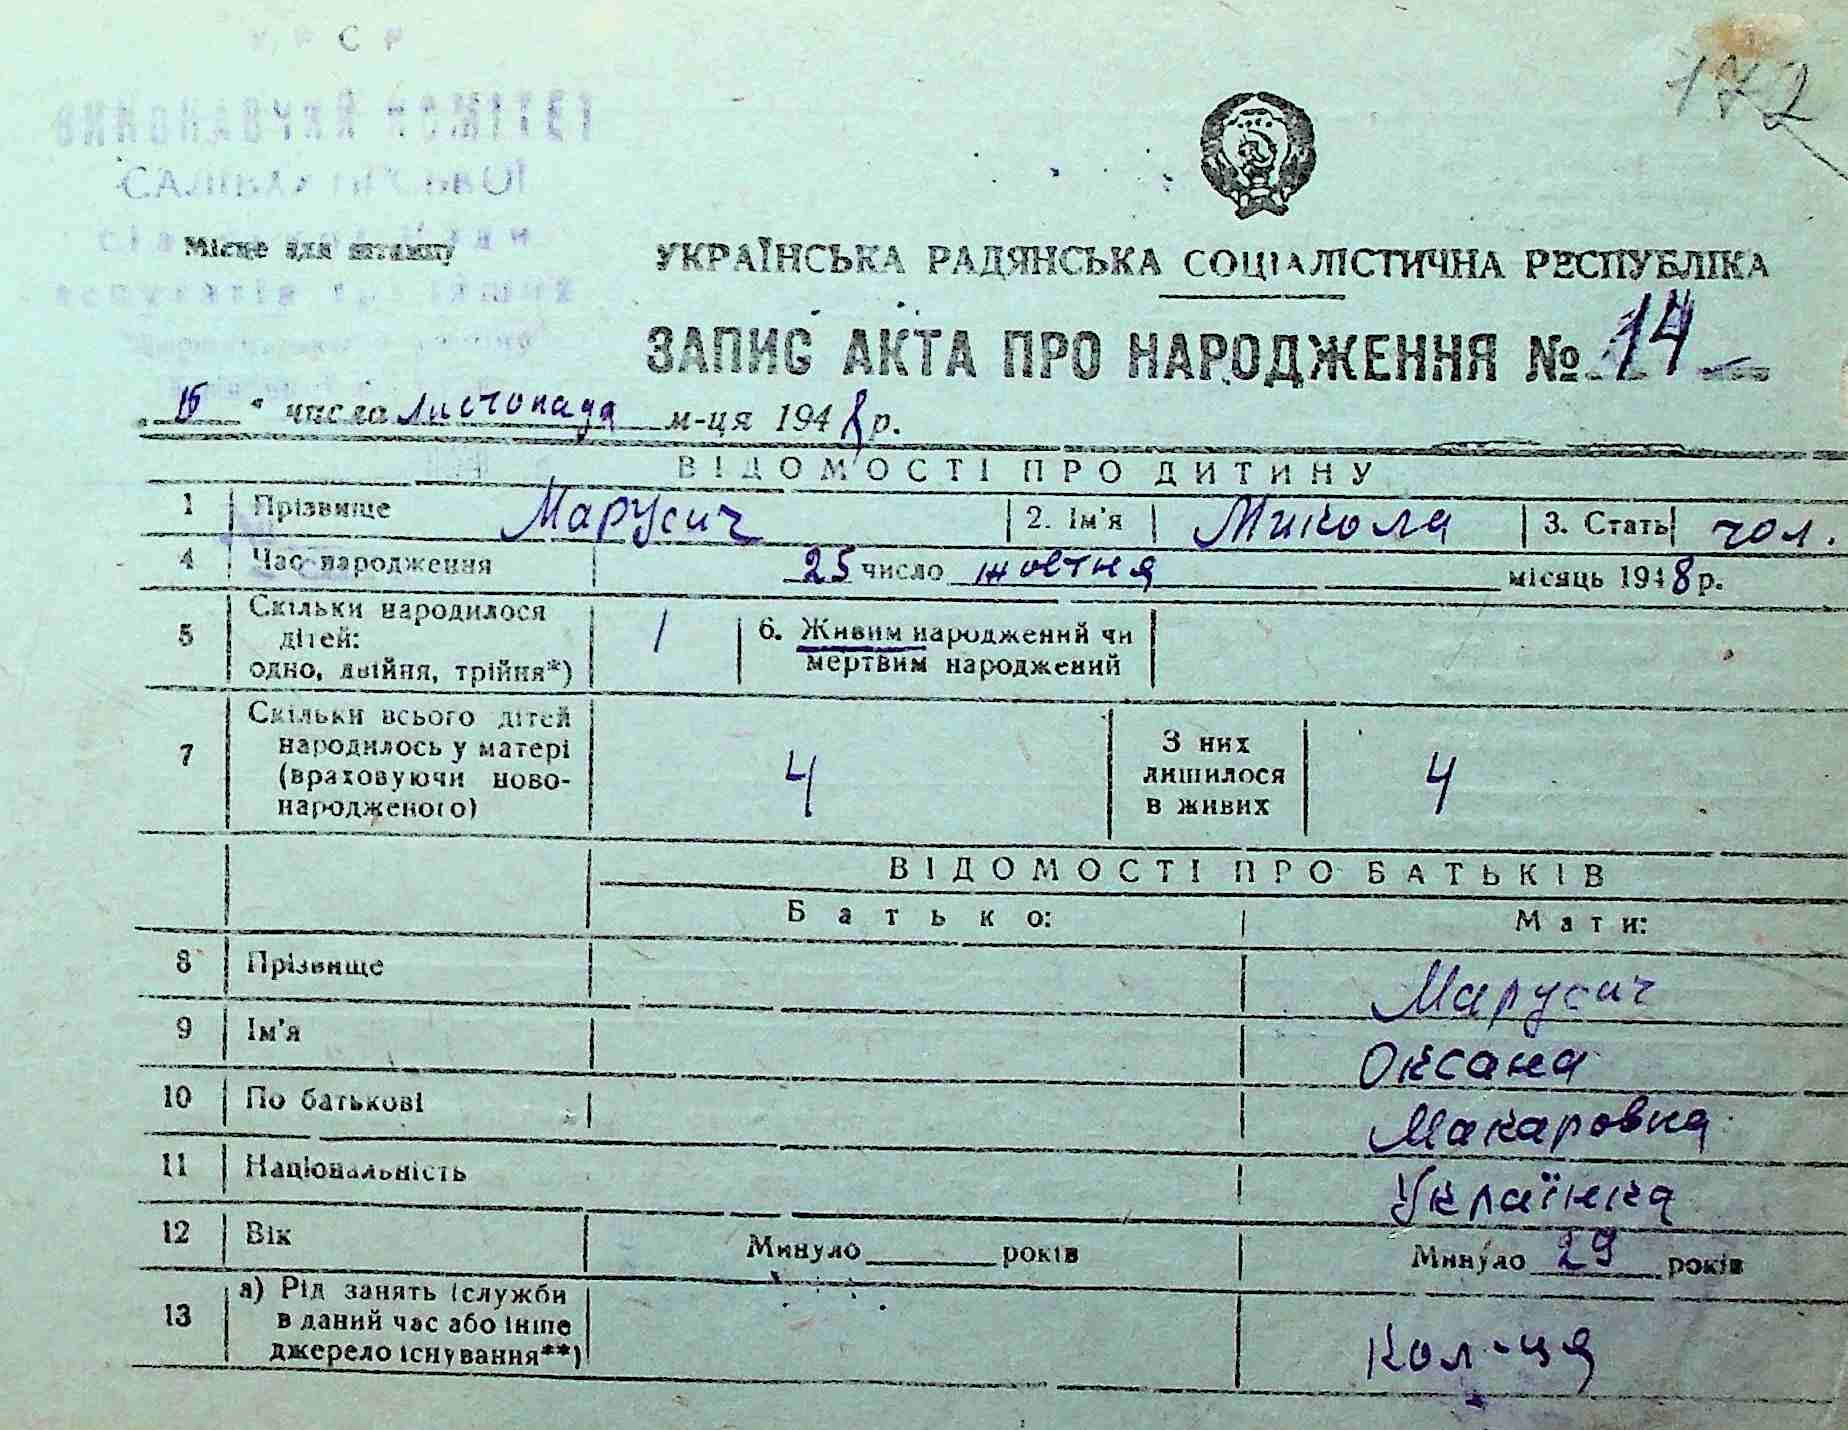 УРСР
ВИКОНАВЧИЙ КОМІТЕТ
172
Місце для штампу
УКРАЇНСЬКА РАДЯНСЬКА СОЦІАЛІСТИЧНА РЕСПУБЛІКА
ЗАПИС АКТА ПРО НАРОДЖЕННЯ № 14
„15“ числа листопада м-ця 1948 р.
ВІДОМОСТІ ПРО ДИТИНУ
1 Прізвище Марусич 2. Ім'я Микола 3. Стать чол.
4 Час народження 25 число жовтня місяць 1948 р.
5 Скільки народилося дітей: одно, двійня, трійня*) 1 6. Живим народжений чи мертвим народжений
7 Скільки всього дітей народилось у матері (враховуючи новонародженого) 4 З них лишилося в живих 4
ВІДОМОСТІ ПРО БАТЬКІВ
Батько: Мати:
8 Прізвище Марусич
9 Ім'я Оксана
10 По батькові Макаровна
11 Національність Українка
12 Вік Минуло років Минуло 29 років
13 а) Рід занять (служби в даний час або інше джерело існування**) Кол-ця